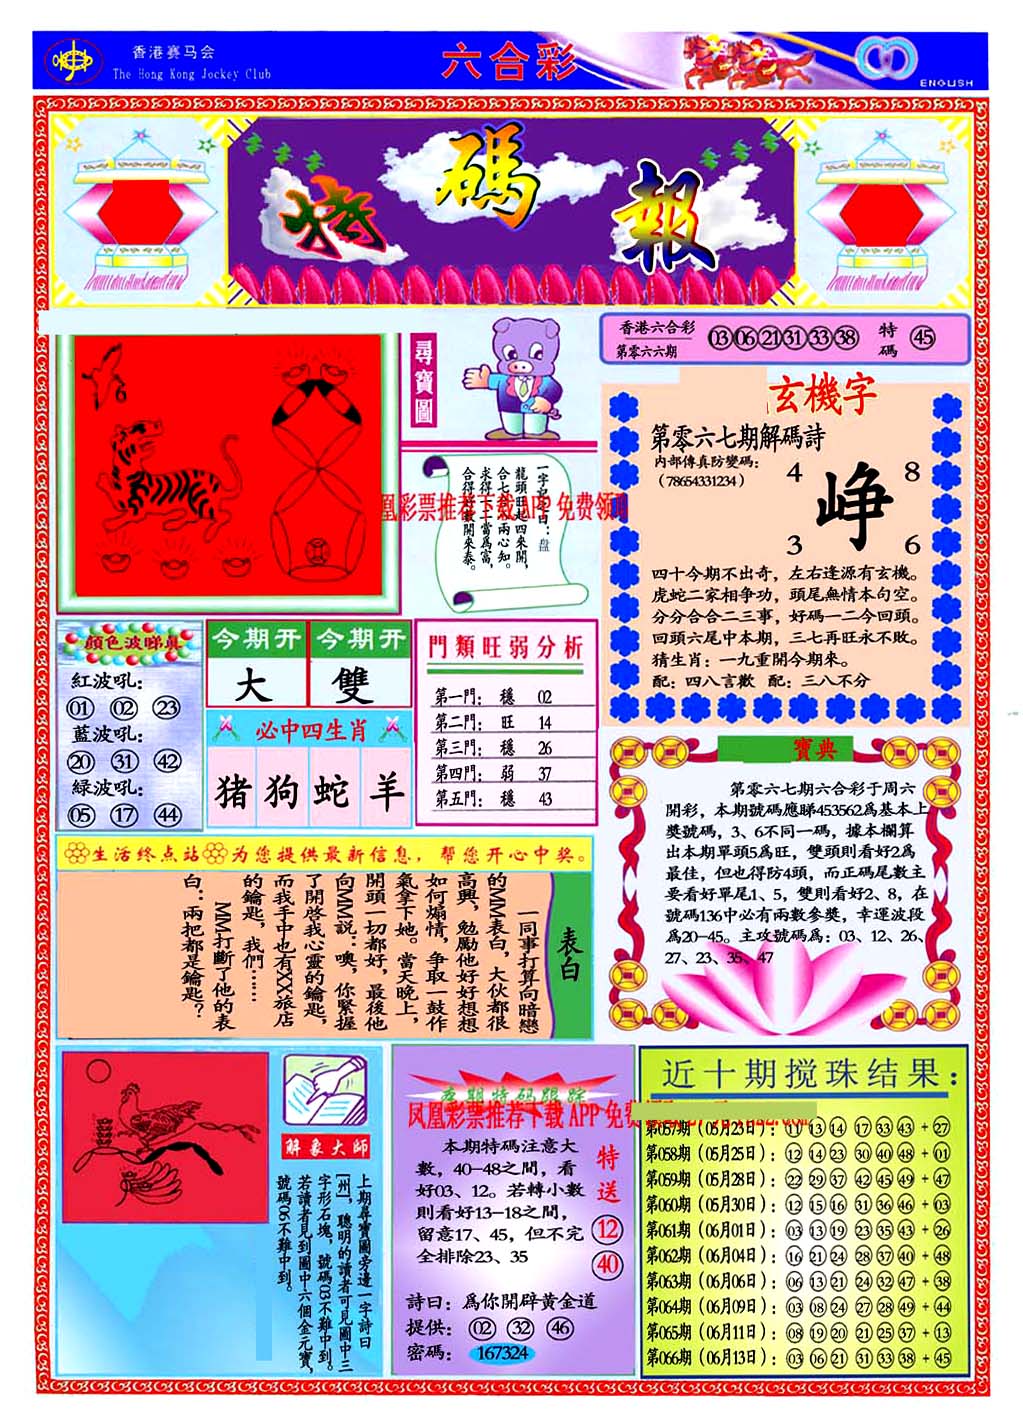 香港赛马会
The Hong Kong Jockey Club
六合彩
ENGLISH
特碼報
香港六合彩
第零六六期
03 06 21 31 33 38
特碼 45
尋寶圖
一字記之曰：盘
龍頭旺起四來開，
求得下二當爲富，
合得數開來泰。
凰彩票推荐下载 APP 免费领
玄機字
第零六七期解碼詩
内部傳真防變碼：
（78654331234）
4 8
峥
3 6
四十今期不出奇，左右逢源有玄機。
虎蛇二家相争功，頭尾無情本句空。
分分合合二三事，好碼一二今回頭。
回頭六尾中本期，三七再旺永不敗。
猜生肖：一九重開今期來。
配：四八言歡 配：三八不分
顏色波睇真
紅波吼：
01 02 23
藍波吼：
20 31 42
緑波吼：
05 17 44
今期开 今期开
大 雙
必中四生肖
猪 狗 蛇 羊
門類旺弱分析
第一門： 穩 02
第二門： 旺 14
第三門： 穩 26
第四門： 弱 37
第五門： 穩 43
寶典
第零六七期六合彩于周六
開彩，本期號碼應睇453562爲基本上
獎號碼，3、6不同一碼，據本欄算
出本期單頭5爲旺，雙頭則看好2爲
最佳，但也得防4頭，而正碼尾數主
要看好單尾1、5，雙則看好2、8，在
號碼136中必有兩數參獎，幸運波段
爲20-45。主攻號碼爲：03、12、26、
27、23、35、47
生活终点站 为您提供最新信息，帮您开心中奖。
表白
一同事打算向暗戀
的MM表白，大伙都很
高興，勉勵他好好想想
如何煽情，争取一鼓作
氣拿下她。當天晚上，
開頭一切都好，最後他
向MM説：噢，你緊握
了開啓我心靈的鑰匙，
而我手中也有XX旅店
的鑰匙，我們……
MM打斷了他的表
白：兩把都是鑰匙？
解象大師
上期尋寶圖旁邊一字詩曰
[州]，聰明的讀者可見圖中三
字形石塊，號碼03不難中到。
若讀者見到圖中六個金元寶，
號碼06不難中到。
本期特码跟踪
凤凰彩票推荐下载 APP 免费
本期特碼注意大
數，40-48之間，看
好03、12。若轉小數
則看好13-18之間，
留意17、45，但不完
全排除23、35
特送
12
40
詩曰：爲你開辟黄金道
提供： 02 32 46
密碼： 167324
近十期搅珠结果：
第057期（05月23日）： 11 13 14 17 33 43 + 27
第058期（05月25日）： 12 14 23 30 40 48 + 01
第059期（05月28日）： 22 29 37 42 45 49 + 47
第060期（05月30日）： 12 15 16 31 36 46 + 03
第061期（06月01日）： 03 13 19 23 35 43 + 26
第062期（06月04日）： 16 21 24 28 37 40 + 48
第063期（06月06日）： 06 13 21 24 32 47 + 38
第064期（06月09日）： 03 08 24 27 28 49 + 44
第065期（06月11日）： 08 19 20 21 25 37 + 13
第066期（06月13日）： 03 06 21 31 33 38 + 45